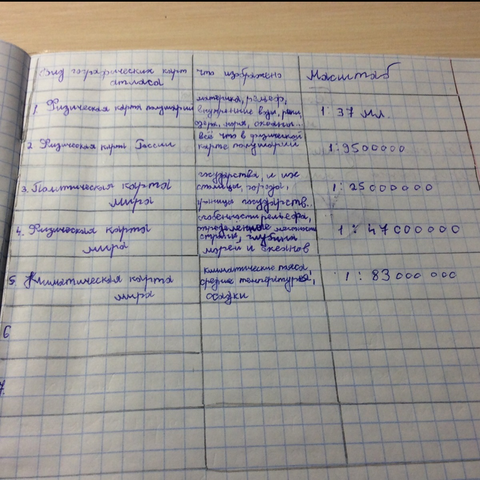 Вид географических карт атласа
что изображено
Масштаб
1. Физическая карта полушарий
материки, рельеф,
внутренние воды, реки
озёра, моря, океаны.
1:37 мл.
2. Физическая карта России
всё что в физической
карте полушарий
1:9500000
3. Политическая карта
мира
государства, и их
столицы, города,
границы государств.
1:25000000
4. Физическая карта
мира
рельефа,
определенные
страны, глубина
морей и океанов
1:47000000
5. Климатическая карта
мира
климатические пояса,
средние температуры,
осадки
1:83000000
6
7.